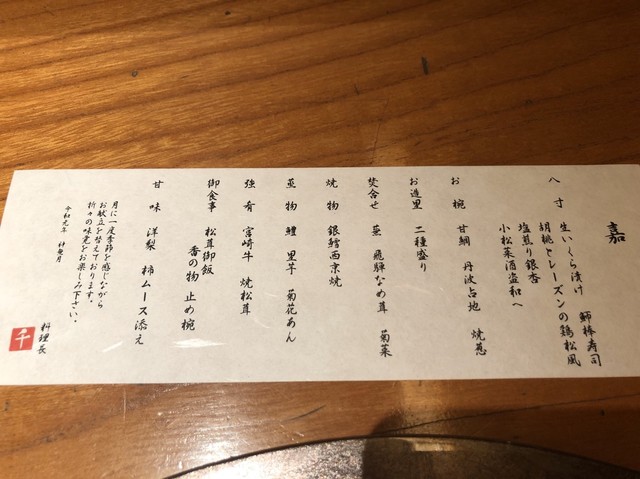 嘉
八寸 生いくら漬け 鰤棒寿司
胡桃とレーズンの鶏松風
塩煎り銀杏
小松菜酒盗和へ
お椀 甘鯛 丹波占地 焼葱
お造里 二種盛り
焚合せ 蕪 飛騨なめ茸 菊菜
焼物 銀鱈西京焼
蒸物 鱧 里芋 菊花あん
強肴 宮崎牛 焼松茸
御食事 松茸御飯
香の物 止め椀
甘味 洋梨 柿ムース添え
月に一度季節を感じながら
お献立を替えております。
折々の味覚をお楽しみ下さい。
令和元年 神無月
料理長
千